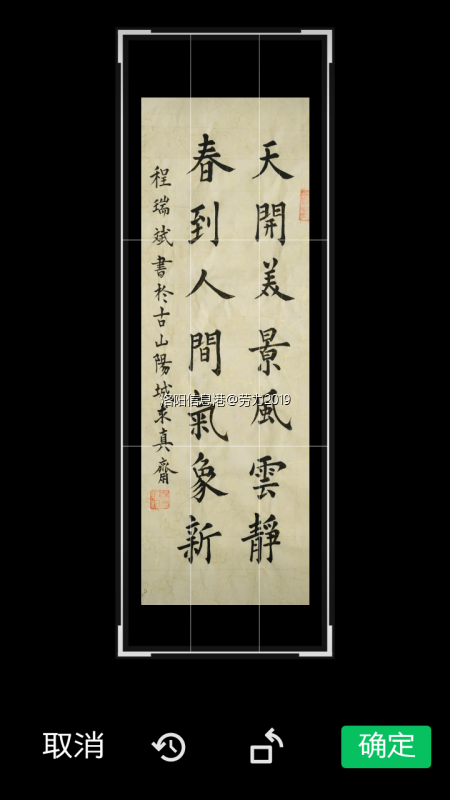 天開美景風雲靜
春到人間氣象新
程瑞斌書於古山陽城求真齋
洛阳信息港@劳力2019
取消
确定